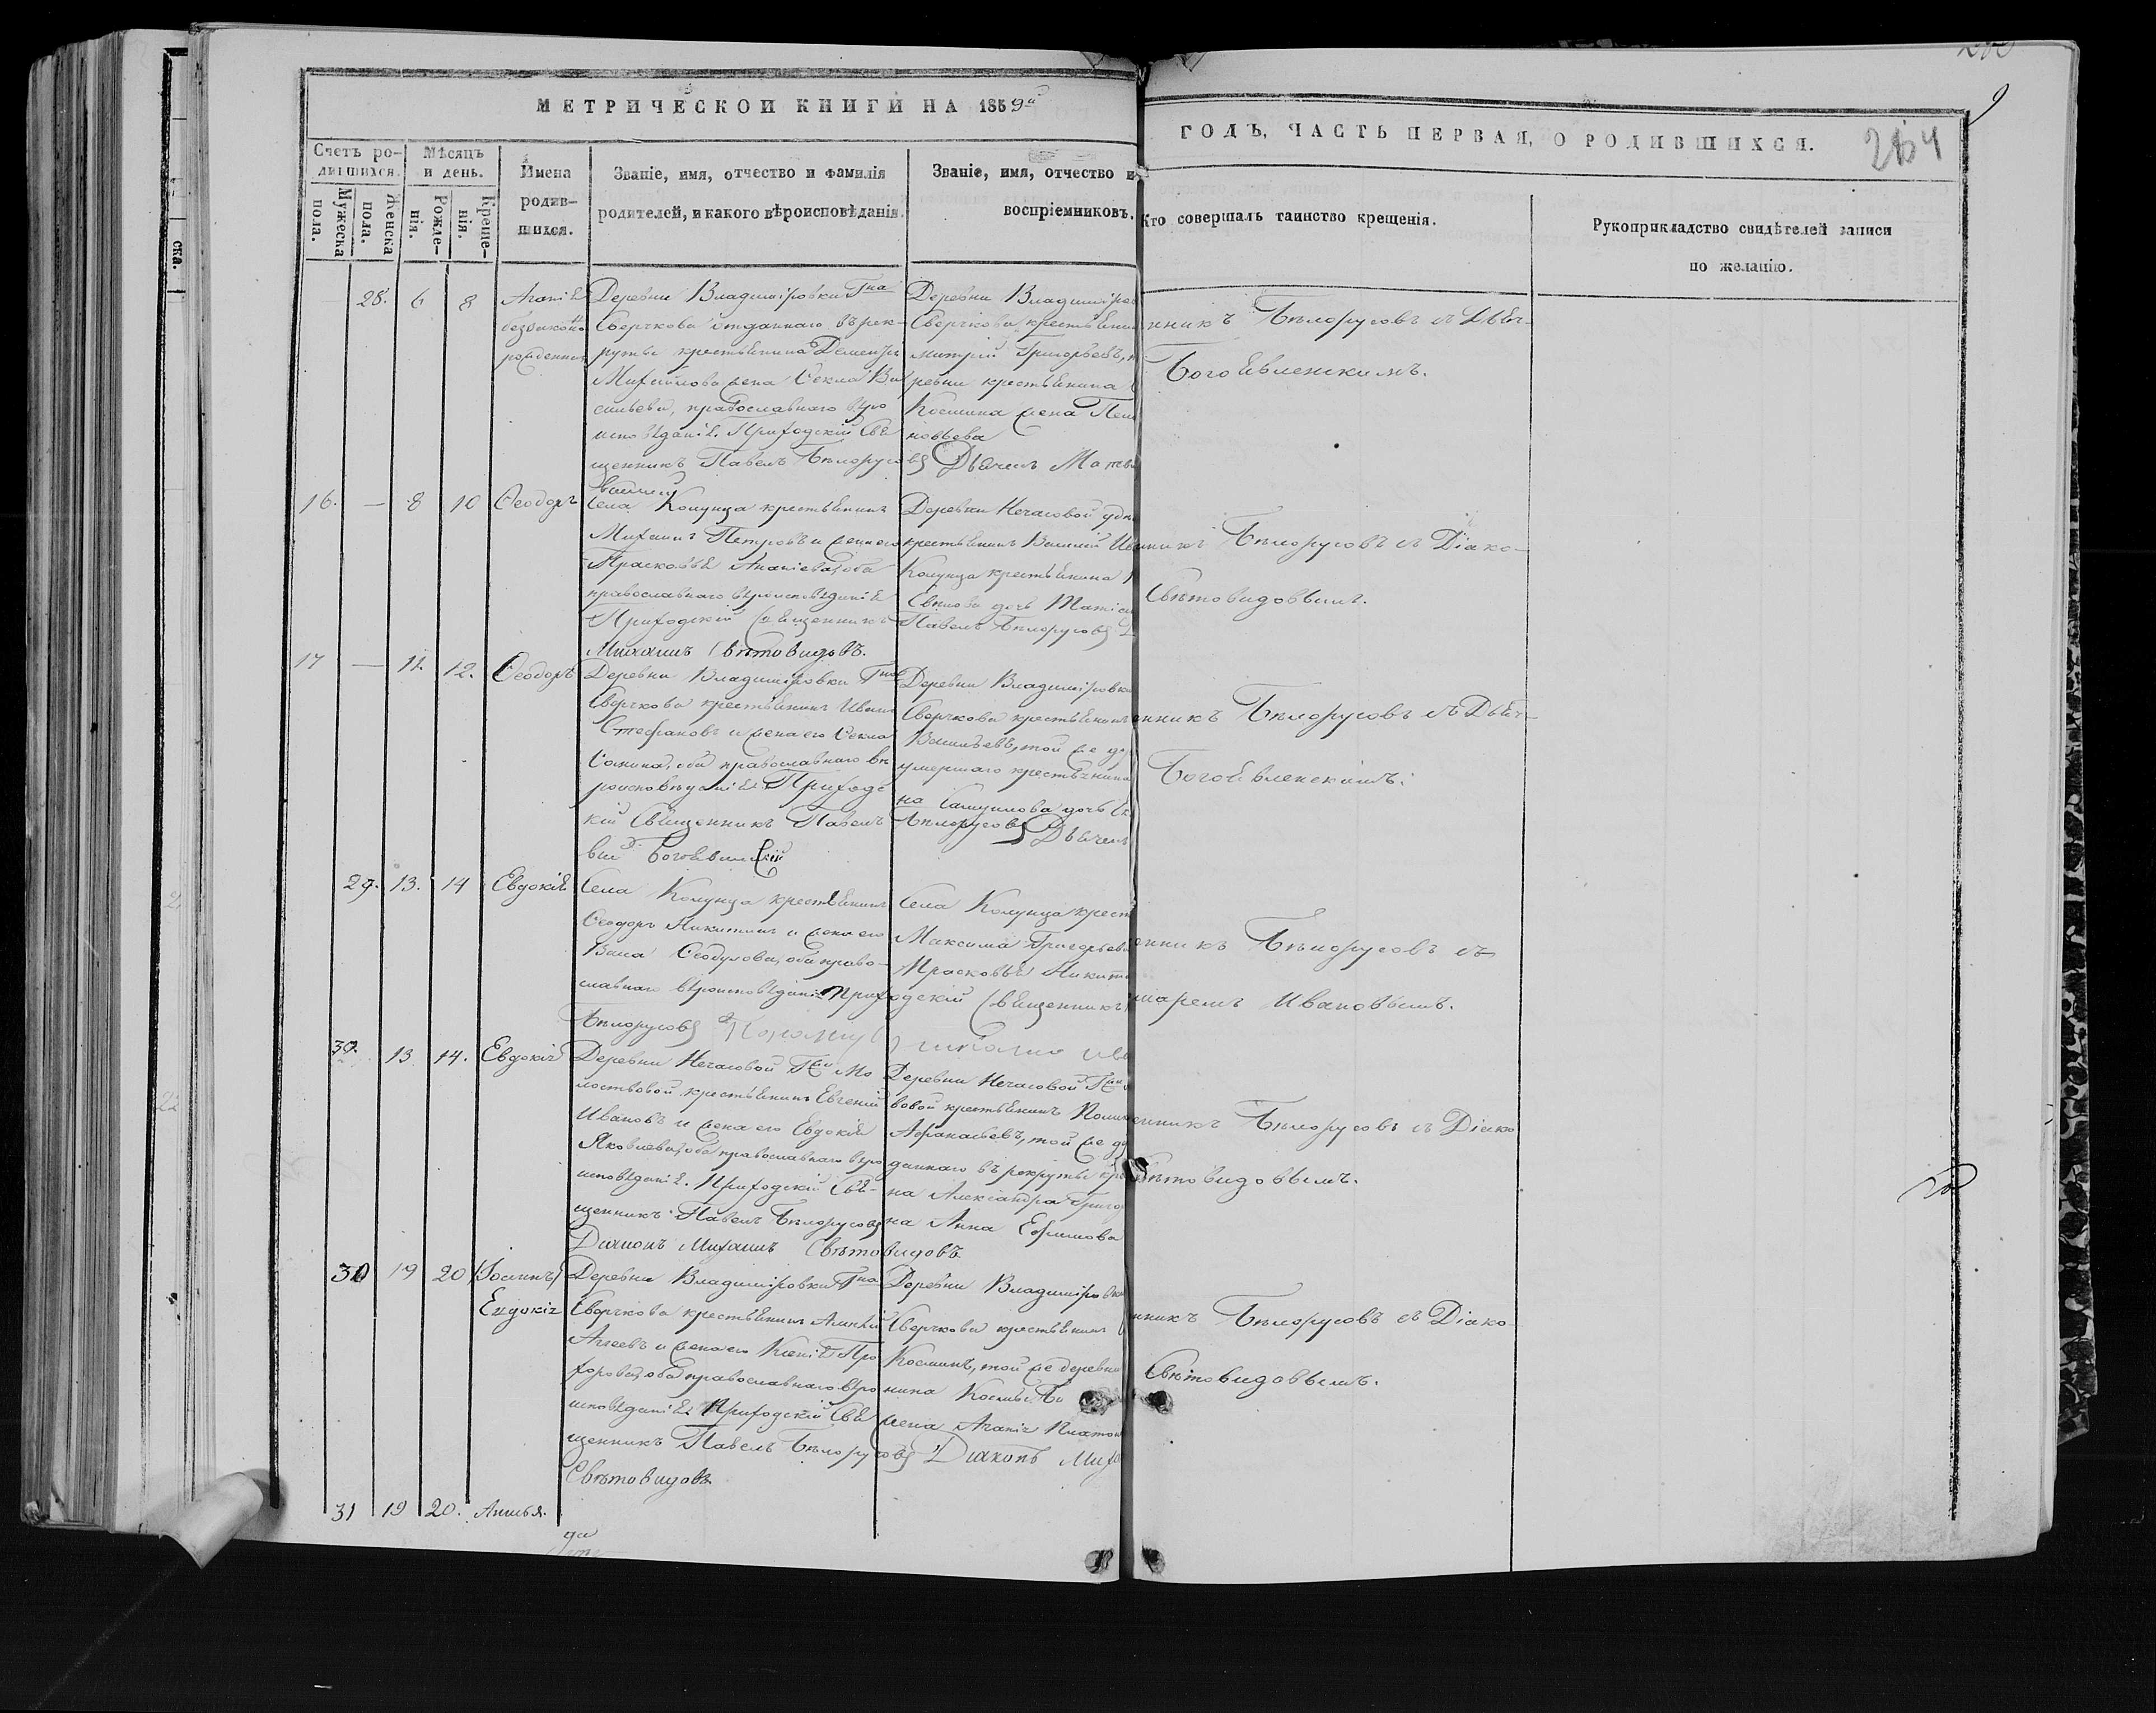 МЕТРИЧЕСКОЙ КНИГИ НА 1859й
ГОДЪ, ЧАСТЬ ПЕРВАЯ, О РОДИВШИХСЯ.
264
Счетъ ро-
дившихся.
Мужеска
пола.
Женска
пола.
Мѣсяцъ
и день.
Рожде-
нія.
Креще-
нія.
Имена
родив-
шихся.
Званіе, имя, отчество и фамилія
родителей, и какого вѣроисповѣданія.
Званіе, имя, отчество и
воспріемниковъ.
Кто совершалъ таинство крещенія.
Рукоприкладство свидѣтелей записи
по желанію.
28. 6 8
Деревни Владиміровки Гна
Сверчкова отданнаго въ рек-
руты крестьянина
Михайлова жена Ѳекла Ва
сильева, православнаго вѣро
исповѣданія. Приходскій Свя
щенникъ Павелъ Бѣлорусовъ
Деревни Владиміров
Сверчкова крестьянин
митрій Григорьевъ,
ревни крестьянина
Космина жена
новьева
Дьячекъ
нникъ Бѣлорусовъ съ Дьяч-
Богоявленскимъ.
16. — 8 10 Ѳеодоръ
Села Колунца крестьянинъ
Михаилъ Петровъ и жена его
Прасковья Ананіева, оба
православнаго вѣроисповѣданія
Приходскій Священникъ Павелъ Бѣлорусовъ
Михаилъ Свѣтовидовъ.
Деревни Нечасовой удѣ
крестьянинъ Василій Ив
Колунца крестьянина
дочь
нникъ Бѣлорусовъ съ Діако-
Свѣтовидовымъ.
17 — 11. 12. Ѳеодоръ
Деревни Владиміровки Гна
Сверчкова крестьянинъ Иванъ
Стефановъ и жена его Ѳекла
оба православнаго вѣ
роисповѣданія Приходс
кій Священникъ Павелъ Бѣлорусовъ Дьячекъ
вей Богоявленскій
Деревни Владиміровки
Сверчкова крестьянинъ
Васильевъ, той же де
умершаго крестьянина
на Самуилова дочь
нникъ Бѣлорусовъ съ Дьяч-
Богоявленскимъ.
29. 13. 14 Евдокія
Села Колунца крестьянинъ
Ѳеодоръ Никитинъ и жена его
Ѳеодулова, оба право-
славнаго вѣроисповѣданія Приходскій Священникъ
Бѣлорусовъ
Села Колунца крест
Максима Григорьева
Прасковья Никити
нникъ Бѣлорусовъ съ
маремъ Ивановымъ.
30. 13 14. Евдокія
Деревни Нечасовой Гжи Мо
лоствовой крестьянинъ Евгеній
Ивановъ и жена его Евдокія
Яковлева, оба православнаго вѣро
исповѣданія. Приходскій Свя-
щенникъ Павелъ Бѣлорусовъ
Діаконъ Михаилъ Свѣтовидовъ.
Деревни Нечасовой Гжи
вовой крестьянинъ
Афанасьевъ, той же де
даннаго въ рекруты кре
на Александра Григо
на Анна Ефимова
нникъ Бѣлорусовъ съ Діако
Свѣтовидовымъ.
30 19 20 (Іоаннъ)
Евдокія
Деревни Владиміровки Гна
Сверчкова крестьянинъ
Агеевъ и жена его Ксенія Про
хорова, оба православнаго вѣро
исповѣданія. Приходскій Свя
щенникъ Павелъ Бѣлорусовъ Діаконъ Миха
Свѣтовидовъ
Деревни Владиміровки
Сверчкова крестьянинъ
Косминъ, той же деревни
нина Космы
жена Агапія Платон
нникъ Бѣлорусовъ съ Діако
Свѣтовидовымъ.
31 19 20.